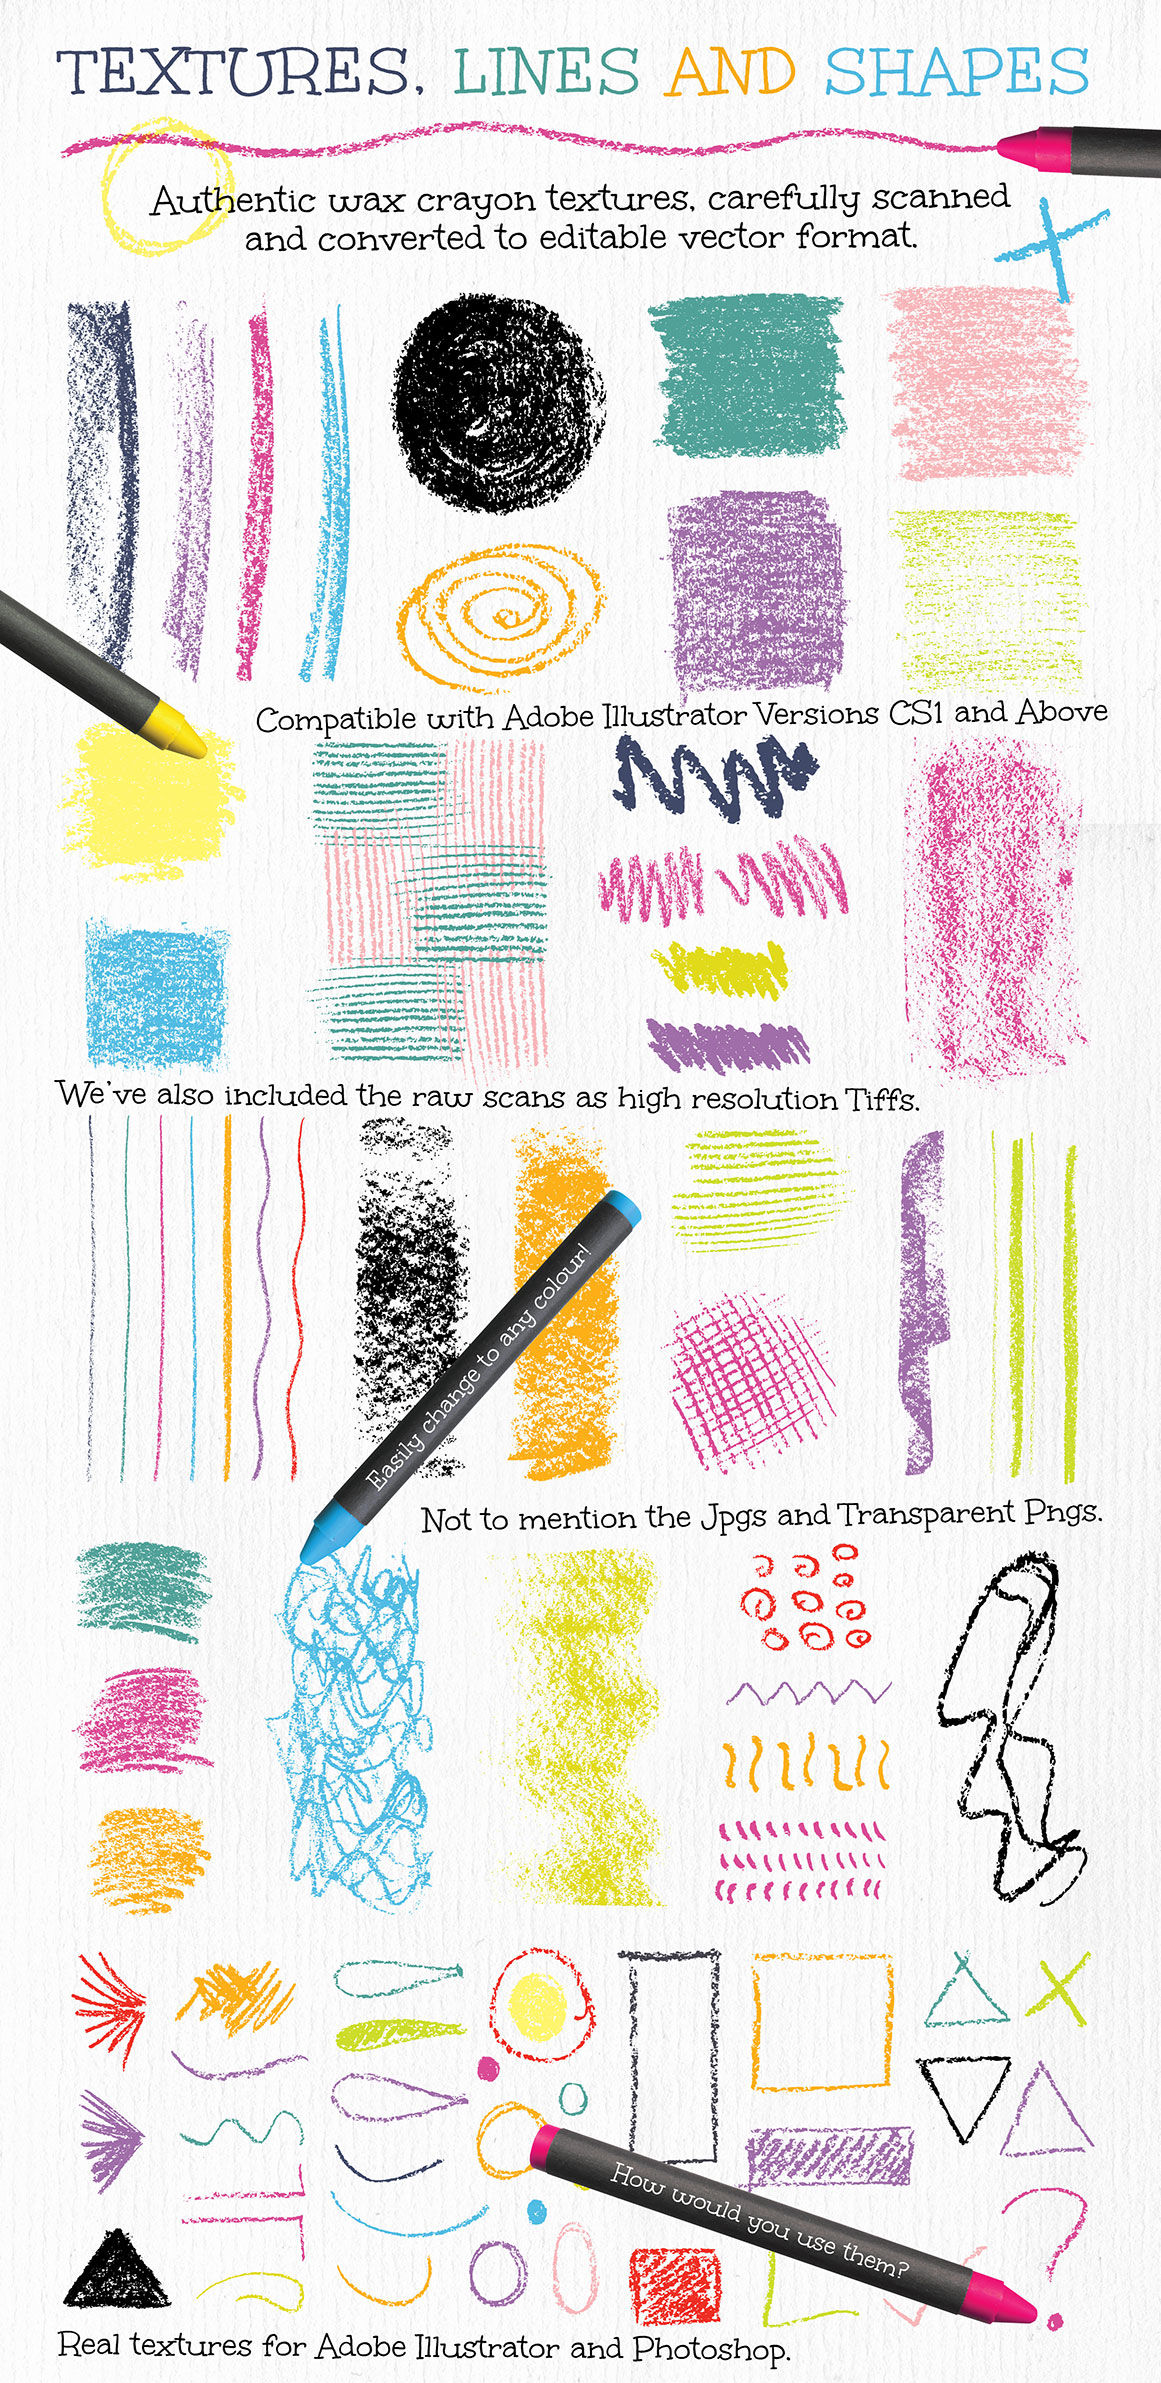 TEXTURES, LINES AND SHAPES
Authentic wax crayon textures, carefully scanned
and converted to editable vector format.
Compatible with Adobe Illustrator Versions CS1 and Above
We've also included the raw scans as high resolution Tiffs.
Easily change to any colour!
Not to mention the Jpgs and Transparent Pngs.
How would you use them?
Real textures for Adobe Illustrator and Photoshop.